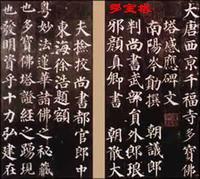 多宝塔
大唐西京千福寺多寶佛
塔感應碑文
南陽岑勛撰 朝議郎
判尚書武部員外郎琅
邪顏真卿書 朝散大
夫撿挍尚書都官郎中
東海徐浩題額
粵妙法蓮華諸佛之秘藏
也多寶佛塔證經之踴現
也發明資乎十力弘建在